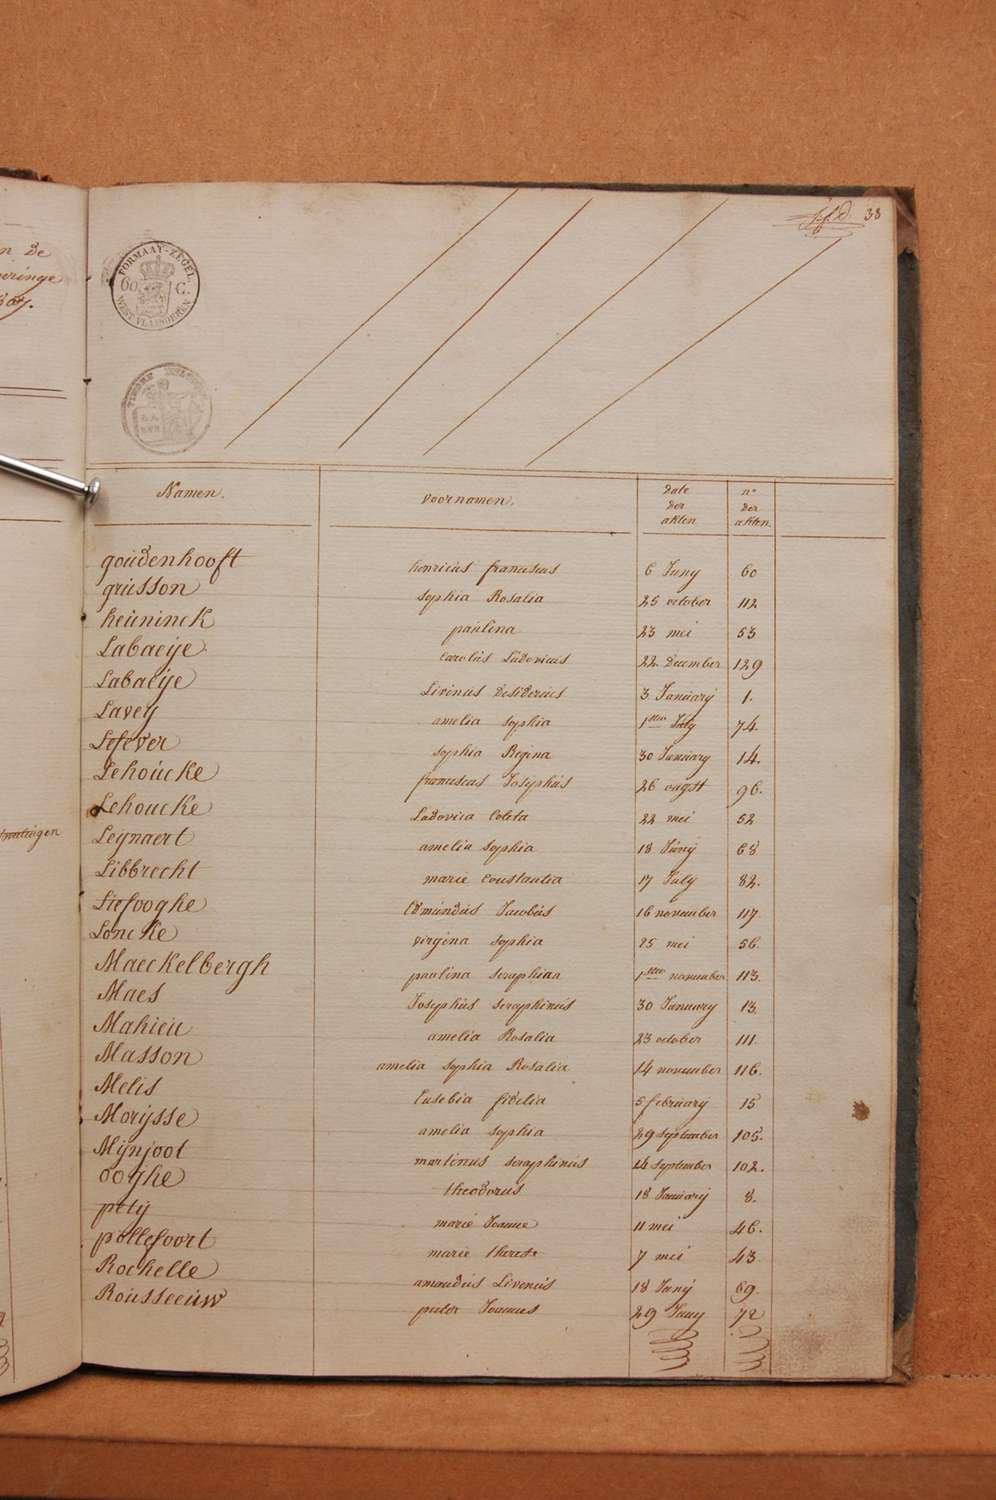 n de
eringe
38
FORMAAT-ZEGEL
60 C.
WEST-VLAANDEREN
TIMBRE
Namen. Voornamen. Date der akten n° der akten.
goudenhooft henricus franciscus 6 Juny 60
grusson sophia Rosalia 25 october 112
heuninck paulina 23 mei 53
Labaeye carolus Ludovicus 22 December 129
Labaeye Livinus Desiderius 3 January 1.
Lavey amelia sophia 1sten July 74.
Lefever sophia Regina 30 January 14.
Lehoucke franciscus Josephus 26 oogst 96.
Lehoucke Ludovica Coleta 22 mei 52
Leynaert amelia sophia 18 Juny 68
Libbrecht marie Constantia 17 July 82.
Liefooghe Edmundus Jacobus 16 november 117
Loncke virgina sophia 25 mei 56.
Maeckelbergh paulina seraphina 1sten november 113.
Maes Josephus seraphinus 30 January 13.
Mahieu amelia Rosalia 23 october 111.
Masson amelia sophia Rosalia 14 november 116.
Melis Eusebia fidelia 5 february 15
Morysse amelia sophia 29 september 105.
Mynjoot martinus seraphinus 14 september 102.
ooghe theodorus 18 January 8.
pety marie Joanne 11 mei 46.
pollefoort marie therese 7 mei 43
Rochelle amandus Livinus 18 Juny 69.
Rousseeuw pieter Joannes 29 Juny 72